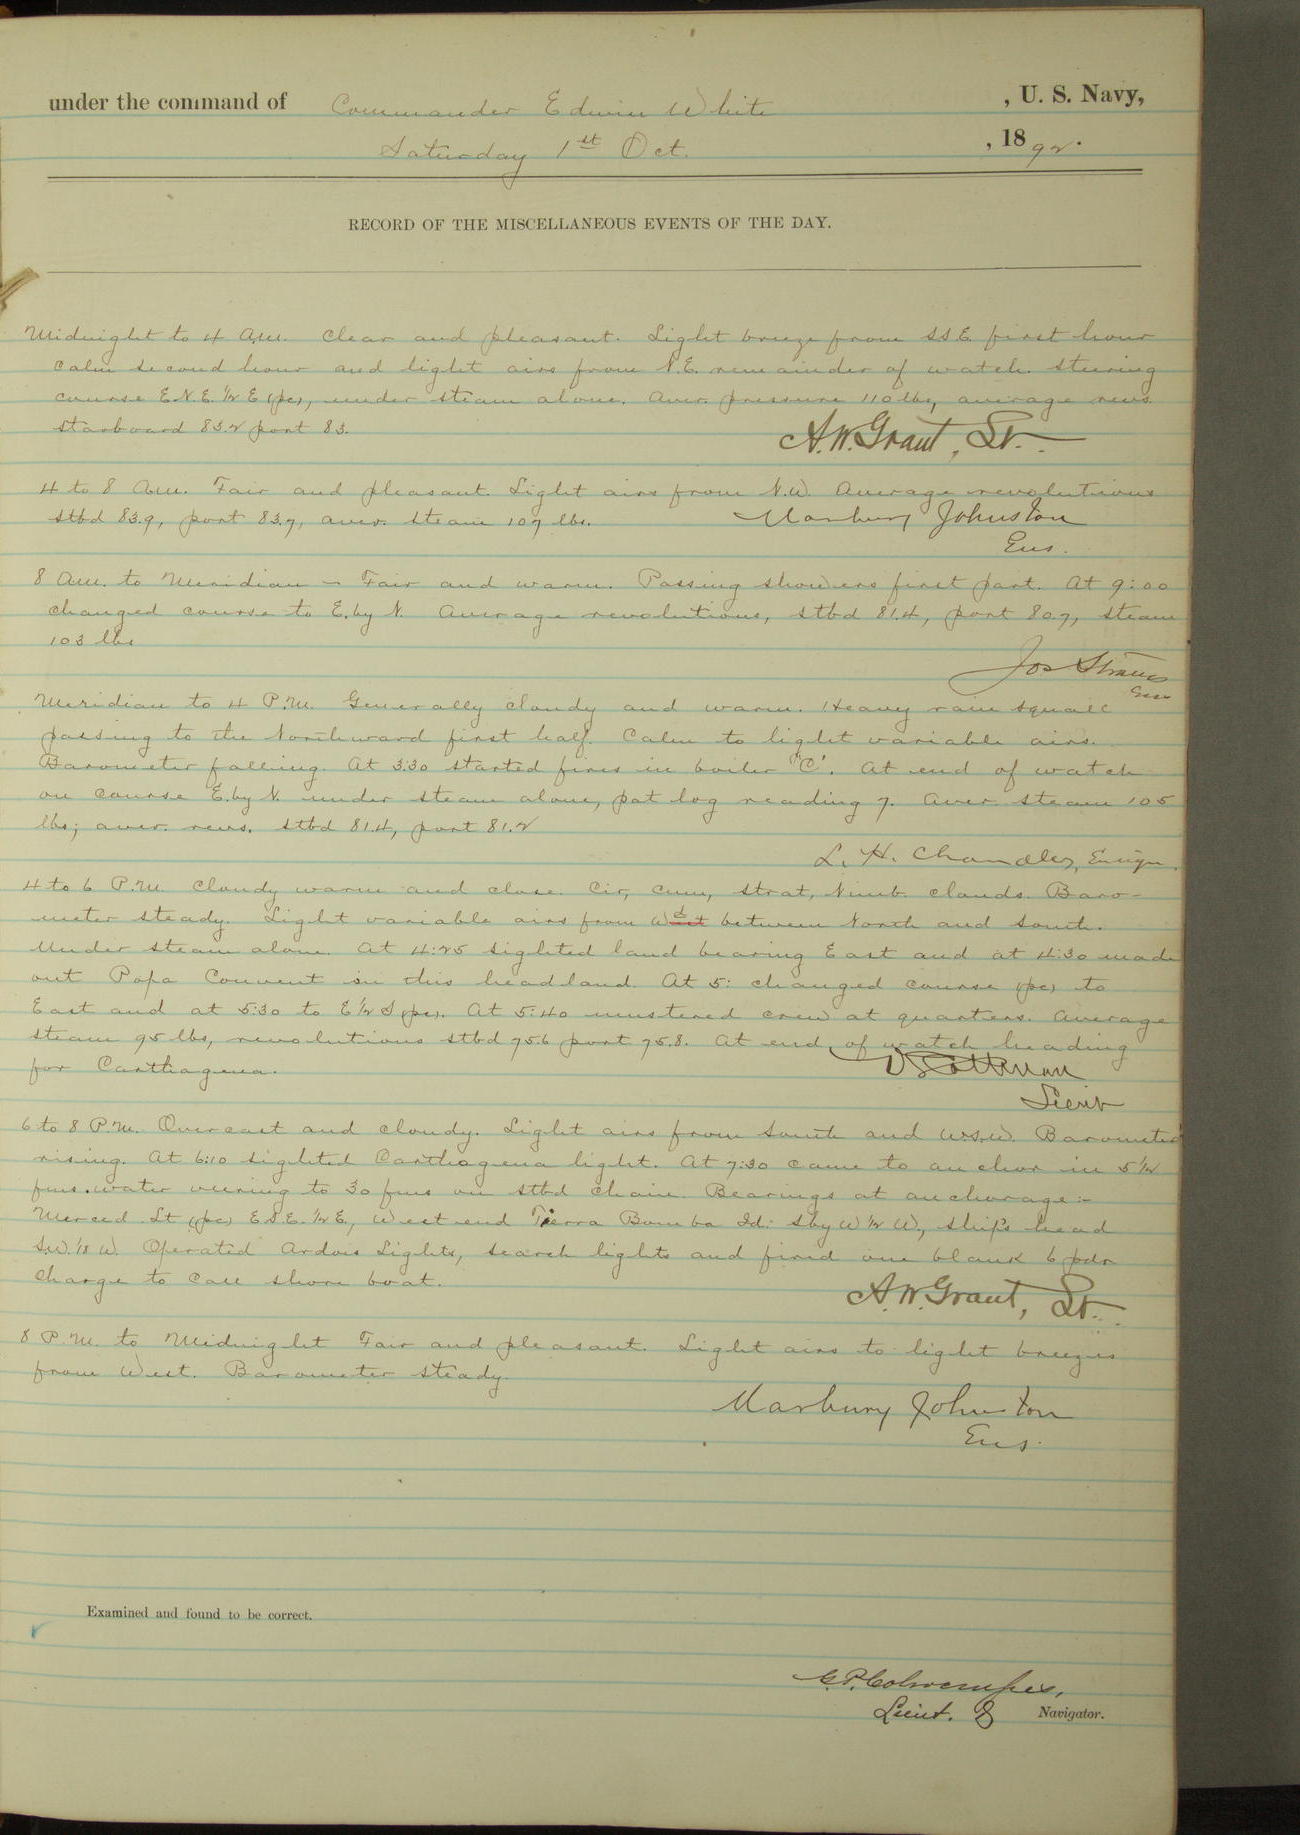 under the command of Commander Edwin White , U. S. Navy,
Saturday 1st Oct. , 1892.
RECORD OF THE MISCELLANEOUS EVENTS OF THE DAY.
Midnight to 4 A.M. Clear and pleasant. Light breeze from SSE first hour
calm second hour and light airs from N.E. remainder of watch. Steering
course E.N.E. 1/2 E (pc), under steam alone. Aver. pressure 110 lbs, average revs.
starboard 83.2 port 83.
A.W. Grant, Lt.
4 to 8 A.M. Fair and pleasant. Light airs from N.W. Average revolutions
stbd 83.9, port 83.7, aver. steam 107 lbs.
Marbury Johnston
Ens.
8 A.M. to Meridian – Fair and warm. Passing showers first part. At 9:00
changed course to E. by N. Average revolutions, stbd 81.4, port 80.7, steam
103 lbs
Jos Strauss
Ens
Meridian to 4 P.M. Generally cloudy and warm. Heavy rain squall
passing to the Northward first half. Calm to light variable airs.
Barometer falling. At 3:30 started fires in boiler "C". At end of watch
on course E. by N. under steam alone, pat log reading 7. Aver. steam 105
lbs; aver. revs. stbd 81.4, port 81.2
L. H. Chandler, Ensign.
4 to 6 P.M. Cloudy warm and close. Cir, Cum, Strat, Nimb. clouds. Baro-
meter steady. Light variable airs from Wd between North and South.
Under steam alone. At 4:25 sighted land bearing East and at 4:30 made
out Popa Convent on this headland. At 5: changed course (pc) to
East and at 5:30 to E 1/2 S (pc). At 5:40 mustered crew at quarters. Average
steam 95 lbs, revolutions stbd 75.6 port 75.8. At end of watch heading
for Carthagena.
Lieut
6 to 8 P.M. Overcast and cloudy. Light airs from South and W.S.W. Barometer
rising. At 6:10 sighted Carthagena light. At 7:30 came to anchor in 5 1/2
fms. water veering to 30 fms on stbd chain. Bearings at anchorage:-
Merced Lt (pc) E.S.E. 1/2 E, West end Tierra Bomba Id: S by W 1/2 W, ship's head
S.W. 1/8 W. Operated Ardois Lights, search lights and fired one blank 6 pdr
charge to call shore boat.
A.W. Grant, Lt.
8 P.M. to Midnight Fair and pleasant. Light airs to light breezes
from West. Barometer steady.
Marbury Johnston
Ens.
Examined and found to be correct.
Lieut. &
Navigator.